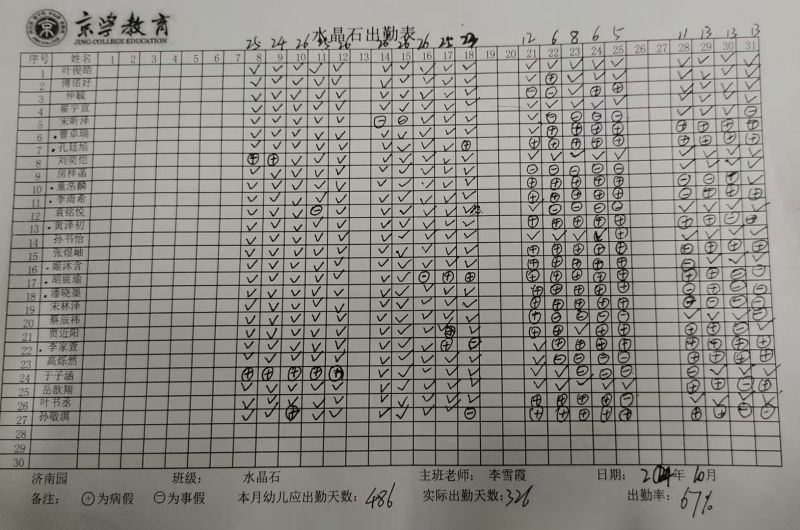 京学教育
JING COLLEGE EDUCATION
水晶石出勤表
25 24 26 25 26 26 28 26 25 24 12 6 8 6 5 11 13 13 13
序号 姓名 1 2 3 4 5 6 7 8 9 10 11 12 14 15 16 17 18 21 22 23 24 25 28 29 30 31
1 叶俊皓
2 傅诺好
3 仲毓
4 翟宇宣
5 宋昕泽
6 曹卓瑞
7 孔廷旭
8 刘奕恺
9 房梓菡
10 董浩麟
11 李雨希
12 袁铭悦
13 黄泽初
14 孙书怡
15 张煜岫
16 姬沐含
17 胡宸瑜
18 潘晓墨
19 宋林泽
20 蔡辰祎
21 贾近阳
22 李家萱
23 高烁然
24 于子涵
25 岳歆翔
26 叶书丞
27 孙敬淇
28
29
30
济南园 班级: 水晶石 主班老师: 李雪霞 日期: 2024年 10月
备注: ⊕为病假 ⊖为事假 本月幼儿应出勤天数: 486 实际出勤天数: 326 出勤率: 67%